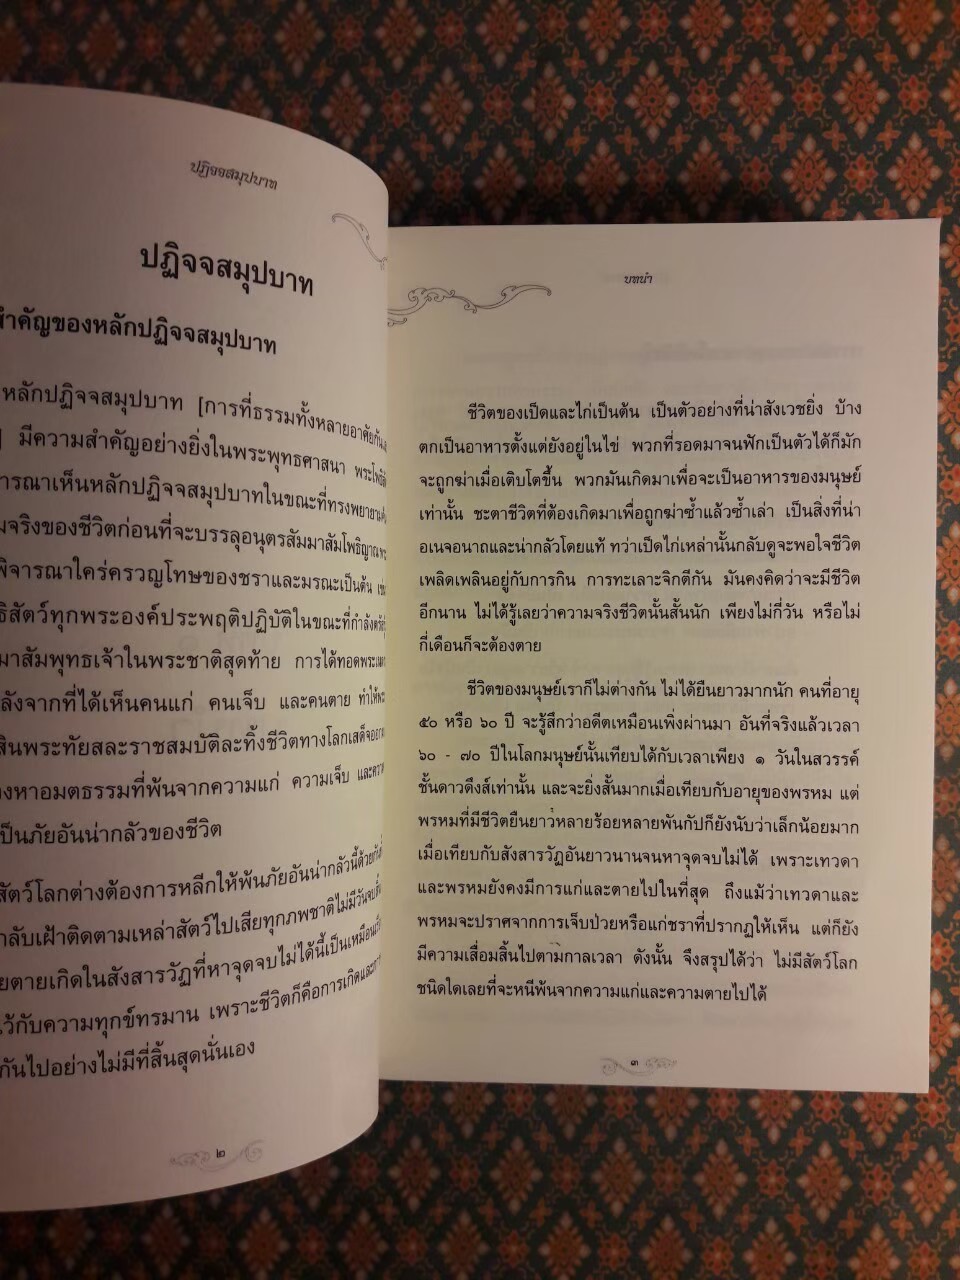 ปฏิจจสมุปบาท
ปฏิจจสมุปบาท
สำคัญของหลักปฏิจจสมุปบาท
หลักปฏิจจสมุปบาท [การที่ธรรมทั้งหลายอาศัยกัน
] มีความสำคัญอย่างยิ่งในพระพุทธศาสนา พระโพธิสั
ารณาเห็นหลักปฏิจจสมุปบาทในขณะที่ทรงพยายาม
มจริงของชีวิตก่อนที่จะบรรลุอนุตรสัมมาสัมโพธิญาณ
พิจารณาใคร่ครวญโทษของชราและมรณะเป็นต้น เช่น
ธิสัตว์ทุกพระองค์ประพฤติปฏิบัติในขณะที่กำลังตรัสรู้
มาสัมพุทธเจ้าในพระชาติสุดท้าย การได้ทอดพระเนตร
ลังจากที่ได้เห็นคนแก่ คนเจ็บ และคนตาย ทำให้พระ
สินพระทัยสละราชสมบัติละทิ้งชีวิตทางโลกเสด็จออก
งหาอมตธรรมที่พ้นจากความแก่ ความเจ็บ และความ
เป็นภัยอันน่ากลัวของชีวิต
สัตว์โลกต่างต้องการหลีกให้พ้นภัยอันน่ากลัวนี้ด้วยกัน
กลับเฝ้าติดตามเหล่าสัตว์ไปเสียทุกภพชาติไม่มีวันจบสิ้น
ยตายเกิดในสังสารวัฏที่หาจุดจบไม่ได้นี้เป็นเหมือน
ไว้กับความทุกข์ทรมาน เพราะชีวิตก็คือการเกิดและการ
กันไปอย่างไม่มีที่สิ้นสุดนั่นเอง
๒
บทนำ
ชีวิตของเป็ดและไก่เป็นต้น เป็นตัวอย่างที่น่าสังเวชยิ่ง บ้าง
ตกเป็นอาหารตั้งแต่ยังอยู่ในไข่ พวกที่รอดมาจนฟักเป็นตัวได้ก็มัก
จะถูกฆ่าเมื่อเติบโตขึ้น พวกมันเกิดมาเพื่อจะเป็นอาหารของมนุษย์
เท่านั้น ชะตาชีวิตที่ต้องเกิดมาเพื่อถูกฆ่าซ้ำแล้วซ้ำเล่า เป็นสิ่งที่น่า
อเนจอนาถและน่ากลัวโดยแท้ ทว่าเป็ดไก่เหล่านั้นกลับดูจะพอใจชีวิต
เพลิดเพลินอยู่กับการกิน การทะเลาะจิกตีกัน มันคงคิดว่าจะมีชีวิต
อีกนาน ไม่ได้รู้เลยว่าความจริงชีวิตนั้นสั้นนัก เพียงไม่กี่วัน หรือไม่
กี่เดือนก็จะต้องตาย
ชีวิตของมนุษย์เราก็ไม่ต่างกัน ไม่ได้ยืนยาวมากนัก คนที่อายุ
๕๐ หรือ ๖๐ ปี จะรู้สึกว่าอดีตเหมือนเพิ่งผ่านมา อันที่จริงแล้วเวลา
๖๐ - ๗๐ ปีในโลกมนุษย์นั้นเทียบได้กับเวลาเพียง ๑ วันในสวรรค์
ชั้นดาวดึงส์เท่านั้น และจะยิ่งสั้นมากเมื่อเทียบกับอายุของพรหม แต่
พรหมที่มีชีวิตยืนยาวหลายร้อยหลายพันกัปก็ยังนับว่าเล็กน้อยมาก
เมื่อเทียบกับสังสารวัฏอันยาวนานจนหาจุดจบไม่ได้ เพราะเทวดา
และพรหมยังคงมีการแก่และตายไปในที่สุด ถึงแม้ว่าเทวดาและ
พรหมจะปราศจากการเจ็บป่วยหรือแก่ชราที่ปรากฏให้เห็น แต่ก็ยัง
มีความเสื่อมสิ้นไปตามกาลเวลา ดังนั้น จึงสรุปได้ว่า ไม่มีสัตว์โลก
ชนิดใดเลยที่จะหนีพ้นจากความแก่และความตายไปได้
๓